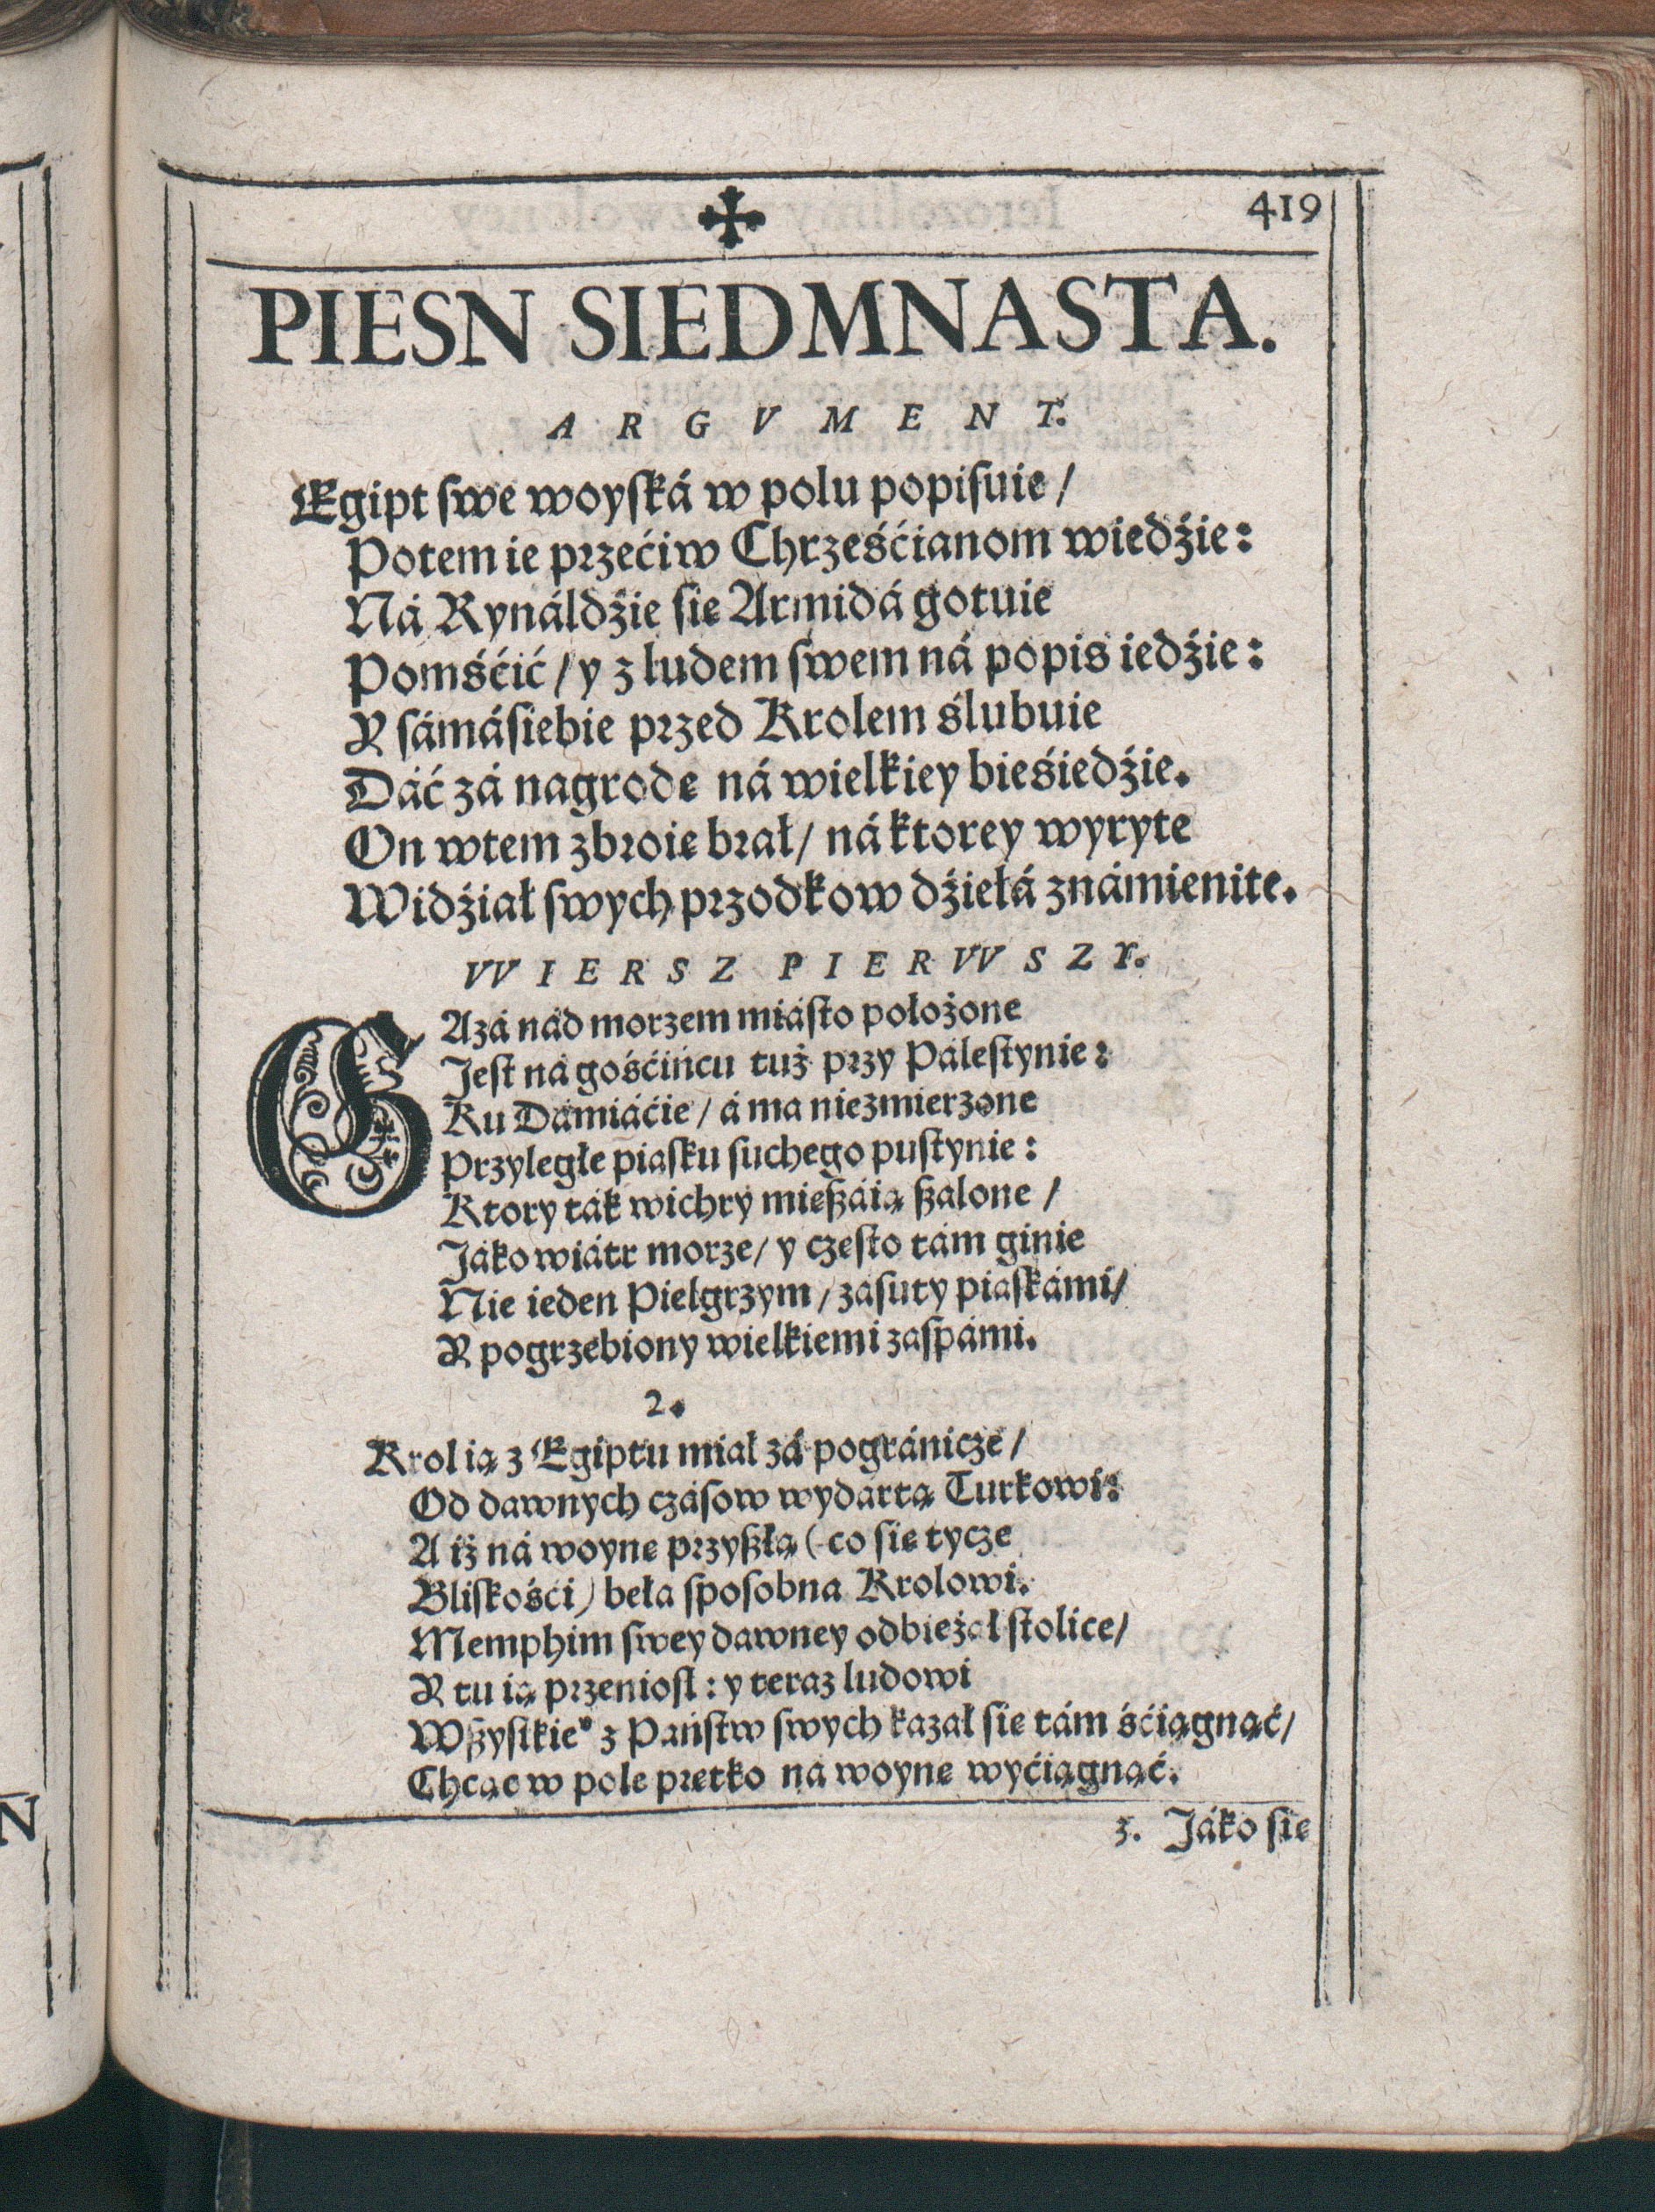 419
PIESN SIEDMNASTA.
ARGVMENT.
Egipt swe woyská w polu popisuie/
Potem ie przećiw Chrześćianom wiedźie:
Ná Rynáldźie się Armidá gotuie
Pomśćić/ y z ludem swem ná popis iedźie:
Y sámá siebie przed Krolem ślubuie
Dáć zá nagrodę ná wielkiey bieśiedźie.
On wtem zbroię brał/ ná ktorey wyryte
Widźiał swych przodkow dźiełá známienite.
WIERSZ PIERWSZY.
GAzá nád morzem miásto położone
Jest ná gośćińcu tuż przy Pálestynie:
Ku Dámiáćie/ á ma niezmierzone
Przyległe piasku suchego pustynie:
Ktory ták wichry mieszáią szalone/
Jáko wiátr morze/ y często tám ginie
Nie ieden Pielgrzym/ zásuty piaskámi/
Y pogrzebiony wielkiemi zaspámi.
2.
Krol ią z Egiptu miał zá pogránicze/
Od dawnych czásow wydártą Turkowi:
A iż ná woynę przyszłą (co się tycze
Bliskośći) beła sposobna Krolowi.
Memphim swey dawney odbieżał stolice/
Y tu ią przeniosł: y teraz ludowi
Wszystkie° z Państw swych kazał się tám śćiągnąć/
Chcąc w pole prętko ná woynę wyćiągnąć.
3. Jáko się
N